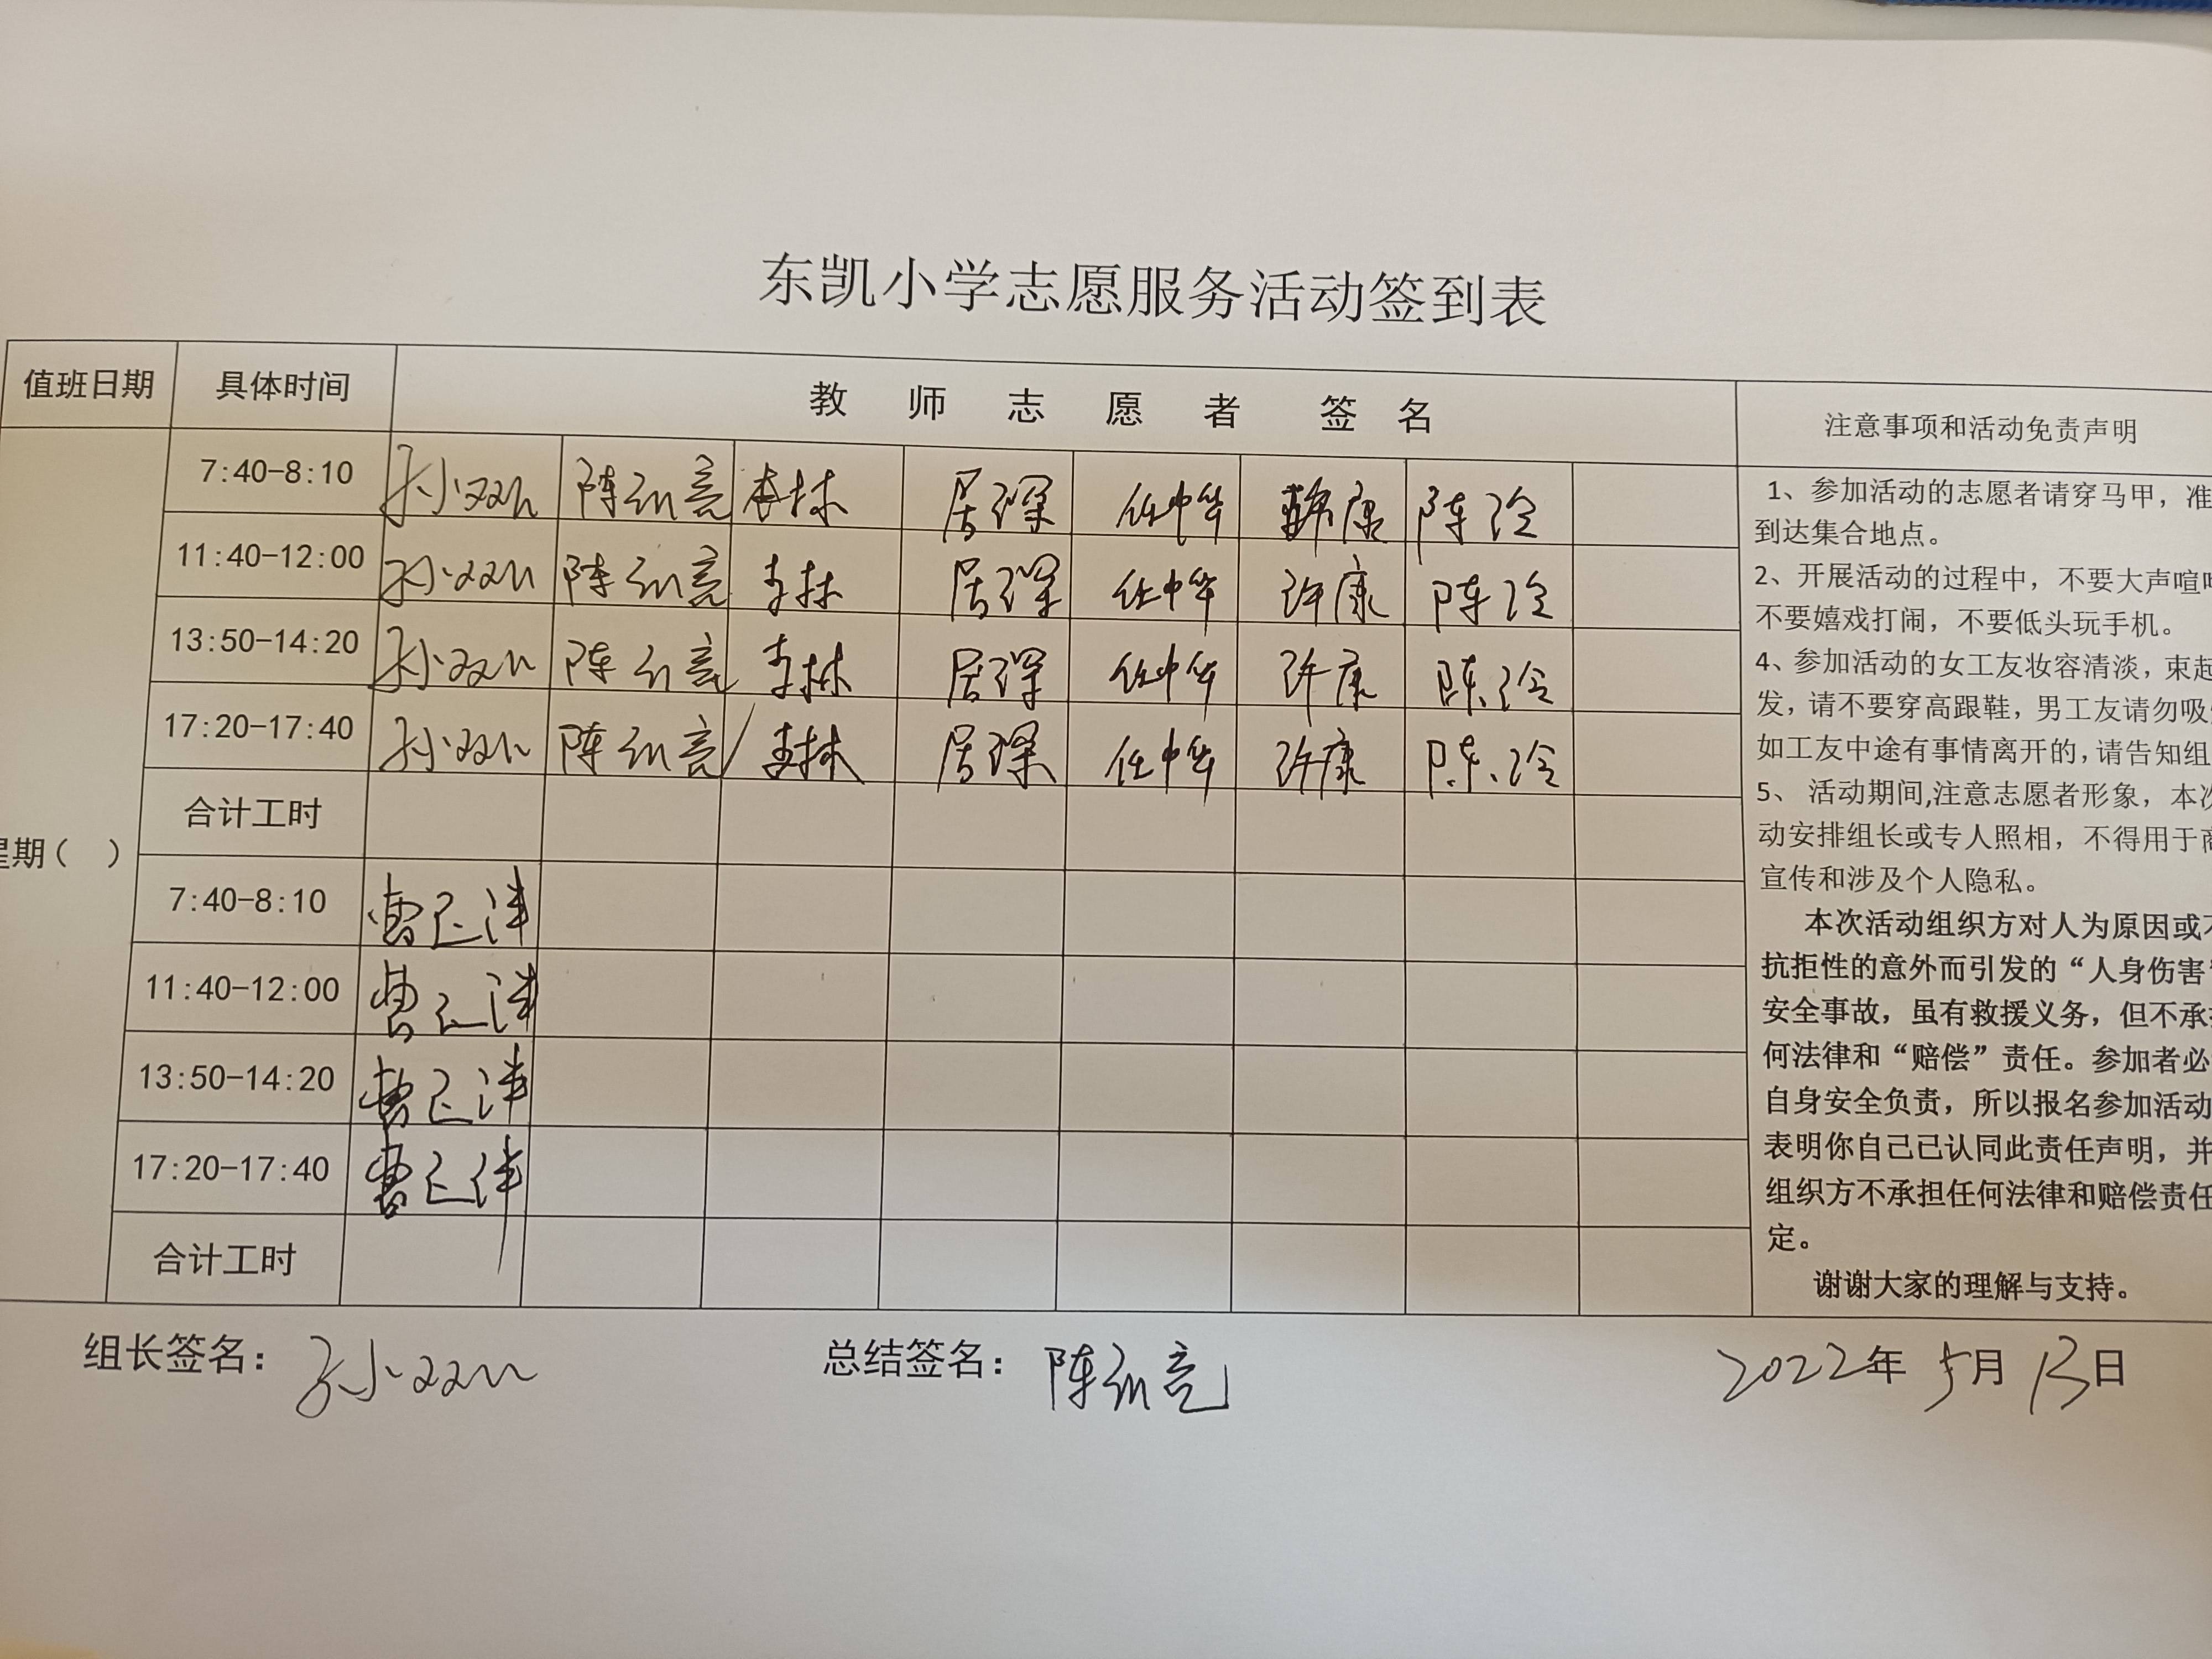 东凯小学志愿服务活动签到表
值班日期 具体时间 教师志愿者签名 注意事项和活动免责声明
7:40-8:10 陈训亮 李林 居深 任中华 许康 陈冷
11:40-12:00 陈训亮 李林 居深 任中华 许康 陈冷
13:50-14:20 陈训亮 李林 居深 任中华 许康 陈冷
17:20-17:40 陈训亮 李林 居深 任中华 许康 陈冷
合计工时
星期( )
7:40-8:10 曹
11:40-12:00 曹
13:50-14:20 曹
17:20-17:40 曹
合计工时
1、参加活动的志愿者请穿马甲，准
到达集合地点。
2、开展活动的过程中，不要大声喧
不要嬉戏打闹，不要低头玩手机。
4、参加活动的女工友妆容清淡，束起
发，请不要穿高跟鞋，男工友请勿吸
如工友中途有事情离开的,请告知组
5、 活动期间,注意志愿者形象，本次
动安排组长或专人照相，不得用于商
宣传和涉及个人隐私。
本次活动组织方对人为原因或不
抗拒性的意外而引发的“人身伤害”
安全事故，虽有救援义务，但不承
何法律和“赔偿”责任。参加者必
自身安全负责，所以报名参加活动
表明你自己已认同此责任声明，并
组织方不承担任何法律和赔偿责任
定。
谢谢大家的理解与支持。
组长签名： 总结签名：陈训亮 2022年5月13日